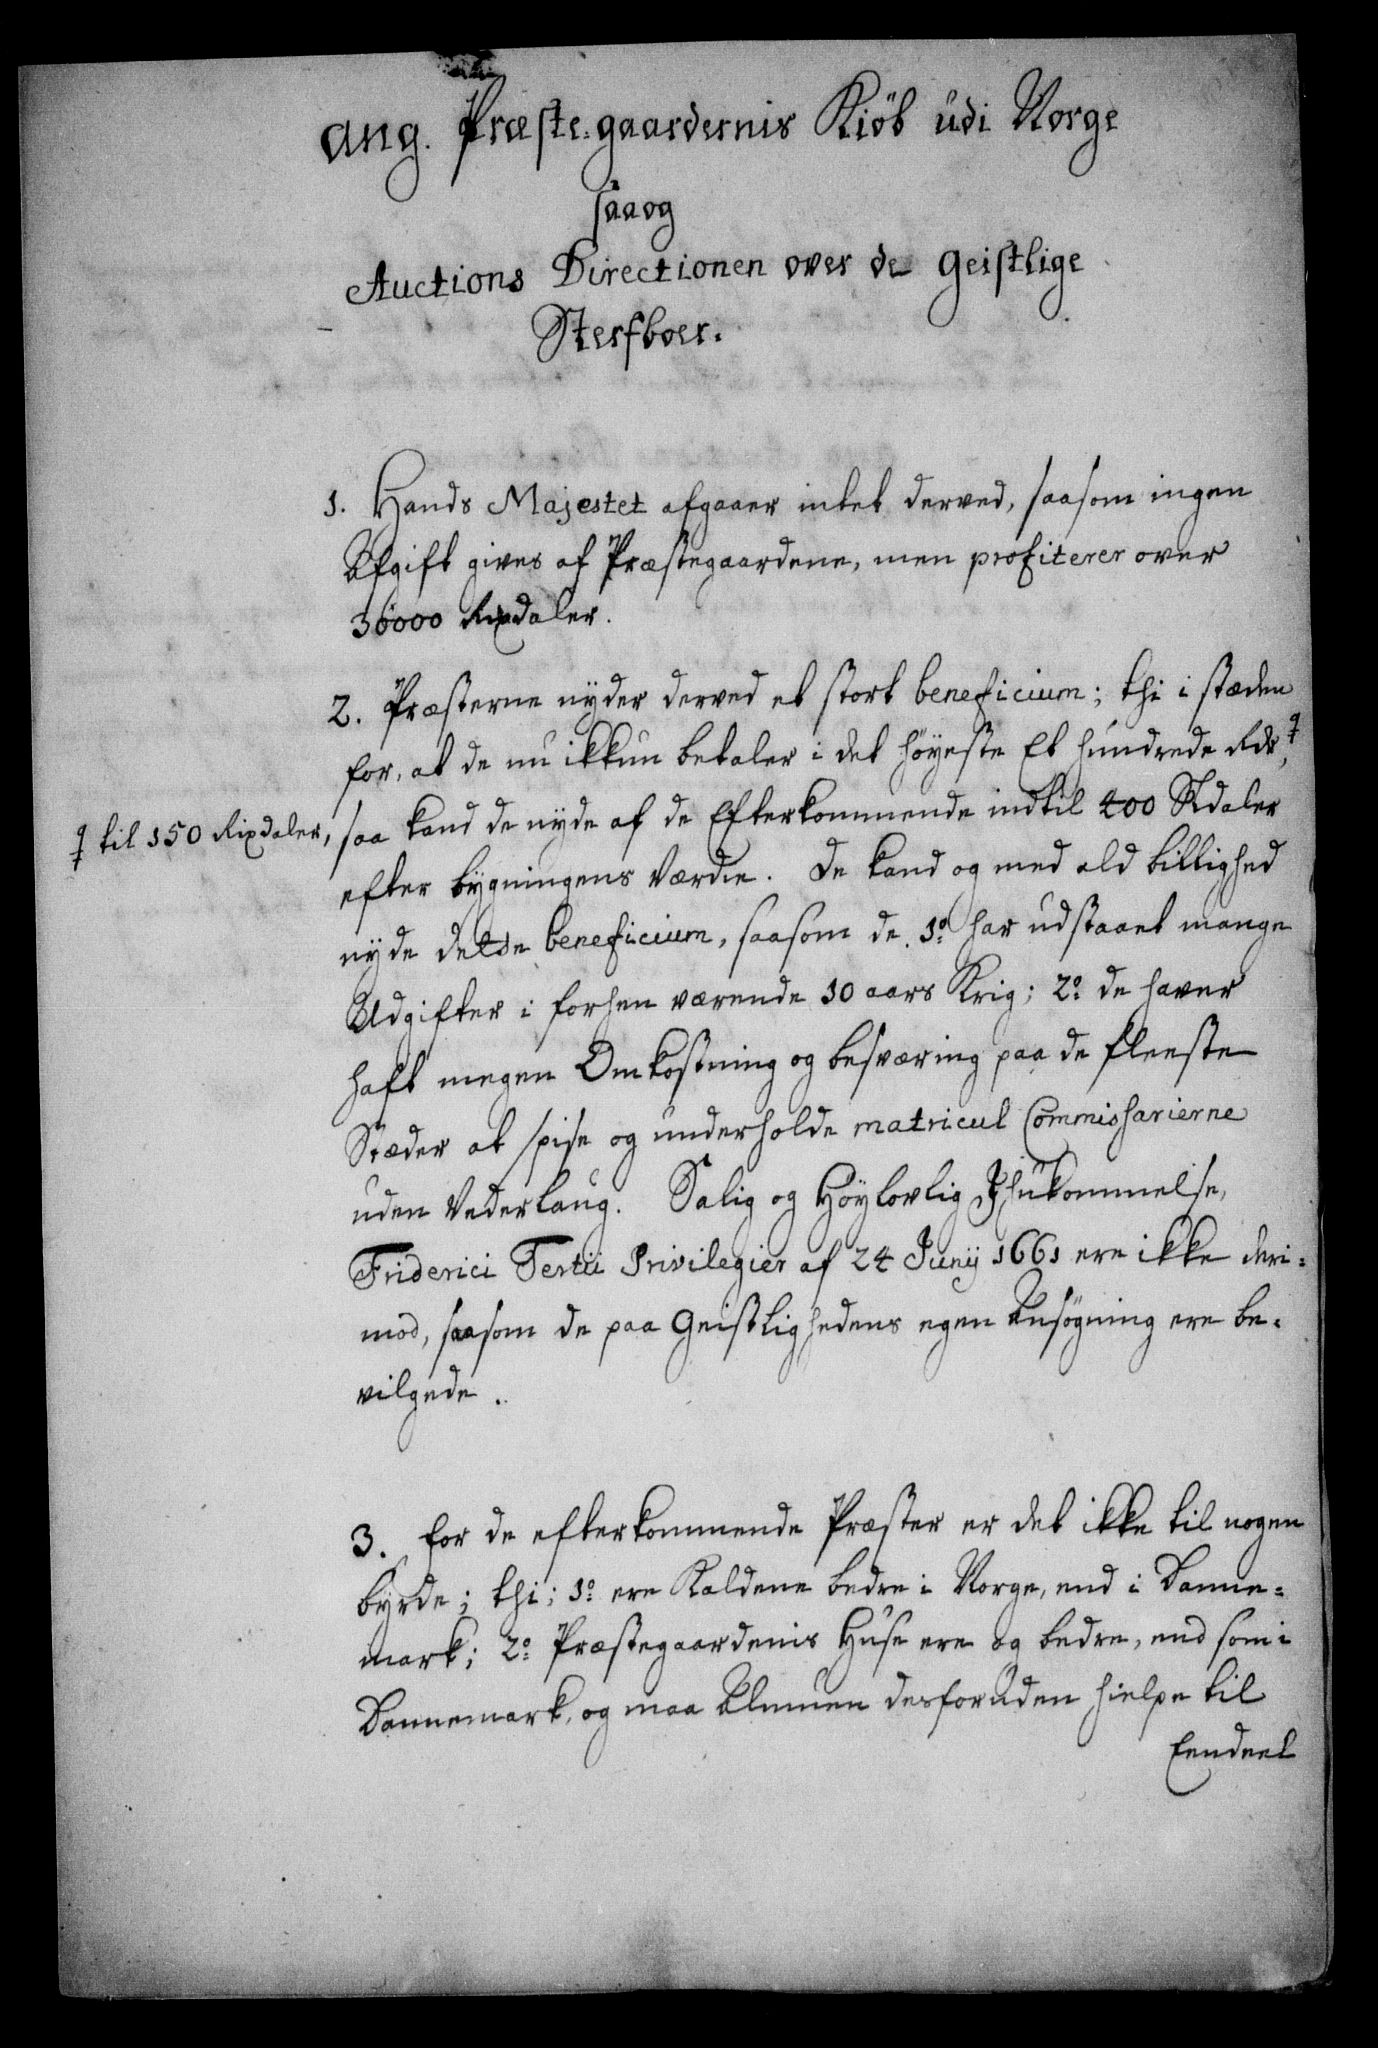 ang. Præste-gaardernis Kiöb udi Norge
saaog
Auctions Directionen over de Geistlige
Sterfboer.
1. Hands Majestet afgaaer intet derved, saasom ingen
Afgift gives af Præstegaardene, men profiterer over
30000 Rixdaler.
2. Præsterne nyder derved et stort beneficium; thi i stæden
for, at de nu ikkun betaler i det höyeste Et hundrede Rdr,
til 150 Rixdaler,
saa kand de nyde af de Efterkommende indtil 400 Rdaler
efter bygningens Værdie. De kand og med ald billighed
nyde dette beneficium, saasom de 1º har udstaaet mange
Udgifter i forhen værende 10 aars Krig; 2º de haver
haft megen Omkostning og besværing paa de fleeste
Stæder at spise og underholde matricul Commissarierne
uden Vederlaug. Salig og Höylovlig Ihukommelse,
Friderici Tertii Privilegier af 24 Junij 1661 ere ikke deri-
mod, saasom de paa Geistlighedens egen Ansögning ere be-
vilgede.
3. For de efterkommende Præster er det ikke til nogen
byrde; thi; 1º ere Kaldene bedre i Norge, end i Danne-
mark; 2º Præstegaardenis Huse ere og bedre, end som i
Dannemark, og maa Almuen desforuden hielpe til
Eendeel